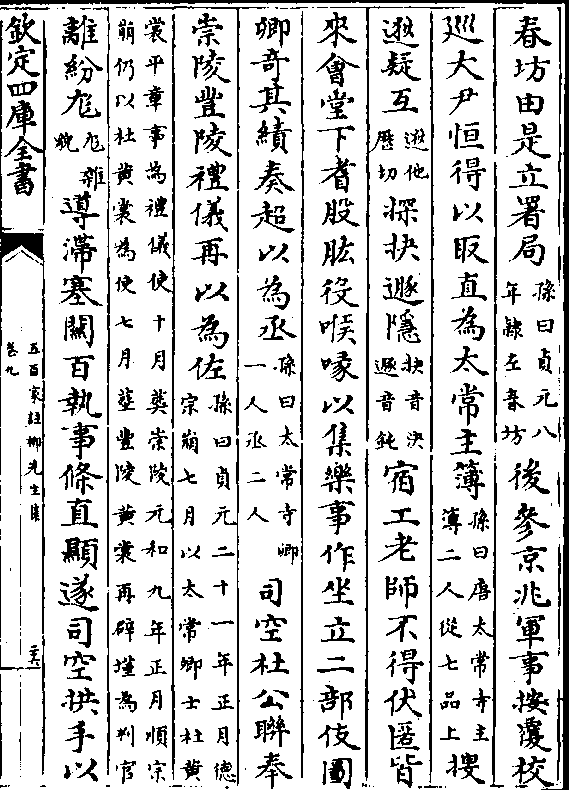 春坊由是立署局孫曰貞元八年隸左春坊後參京兆軍事按覆校
巡大尹恒得以取直為太常主簿孫曰唐太常寺主簿二人從七品上搜
逖疑互逖他歷切探抉遯隱抉音決遯音鈍宿工老師不得伏匿皆
來會堂下耆股肱役喉喙以集樂事作坐立二部伎圖
卿奇其績奏超以為丞孫曰太常寺卿一人丞二人司空杜公聯奉
崇陵豐陵禮儀再以為佐孫曰貞元二十一年正月德宗崩七月以太常卿士杜黃
裳平章事為禮儀使十月葬崇陵元和九年正月順宗崩仍以杜黃裳為使七月塟豐陵黃裳再辟瑾為判官
離紛尨尨雜貌導滯塞關百執事條直顯遂司空拱手以
欽定四庫全書
五百家註柳先生集
卷九